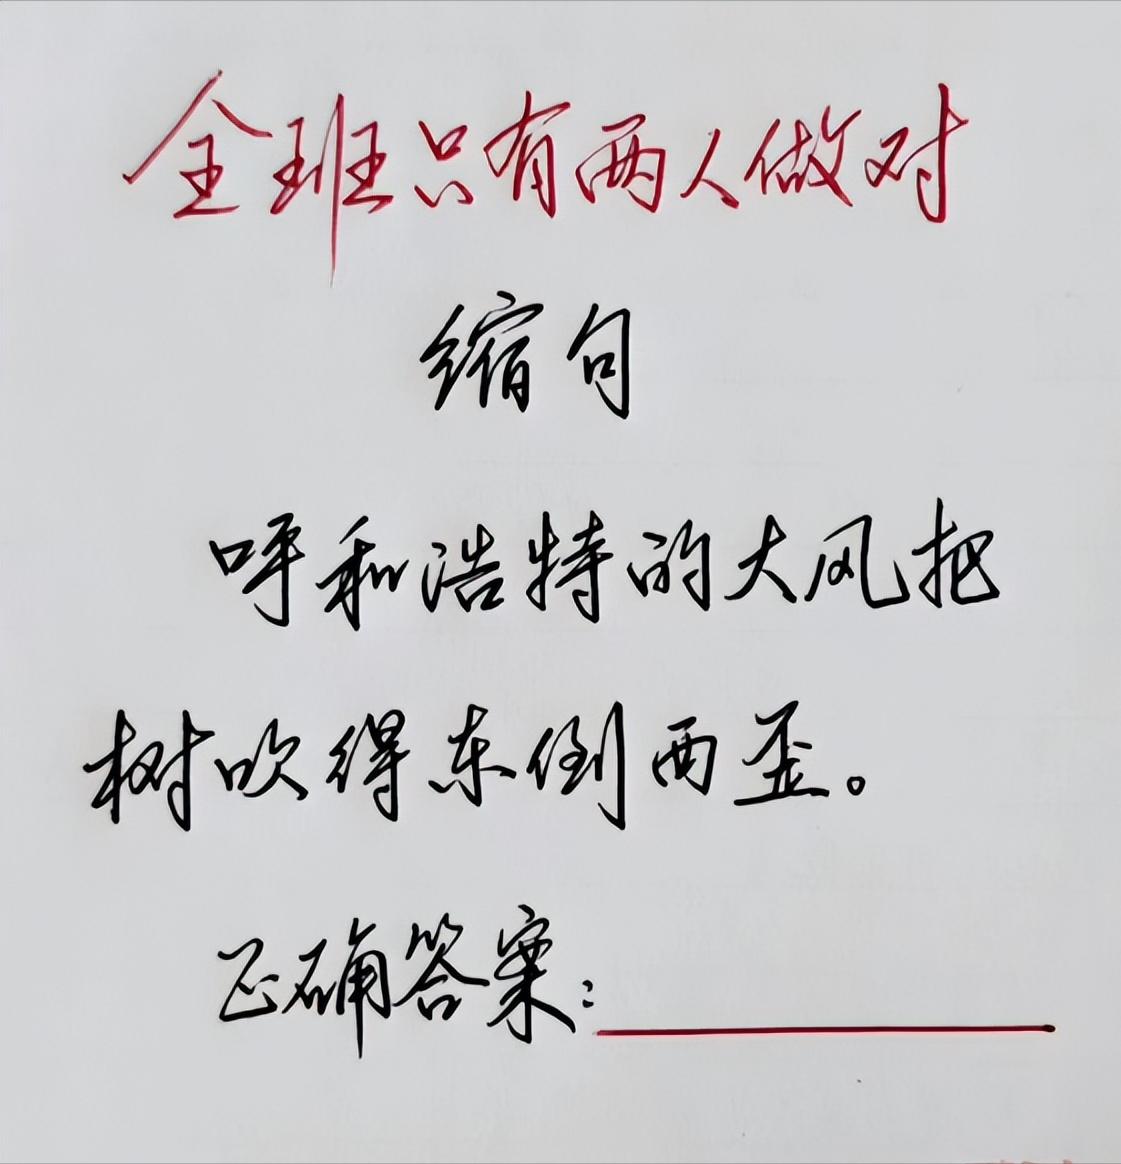 全班只有两人做对
缩句
呼和浩特的大风把
树吹得东倒西歪。
正确答案：